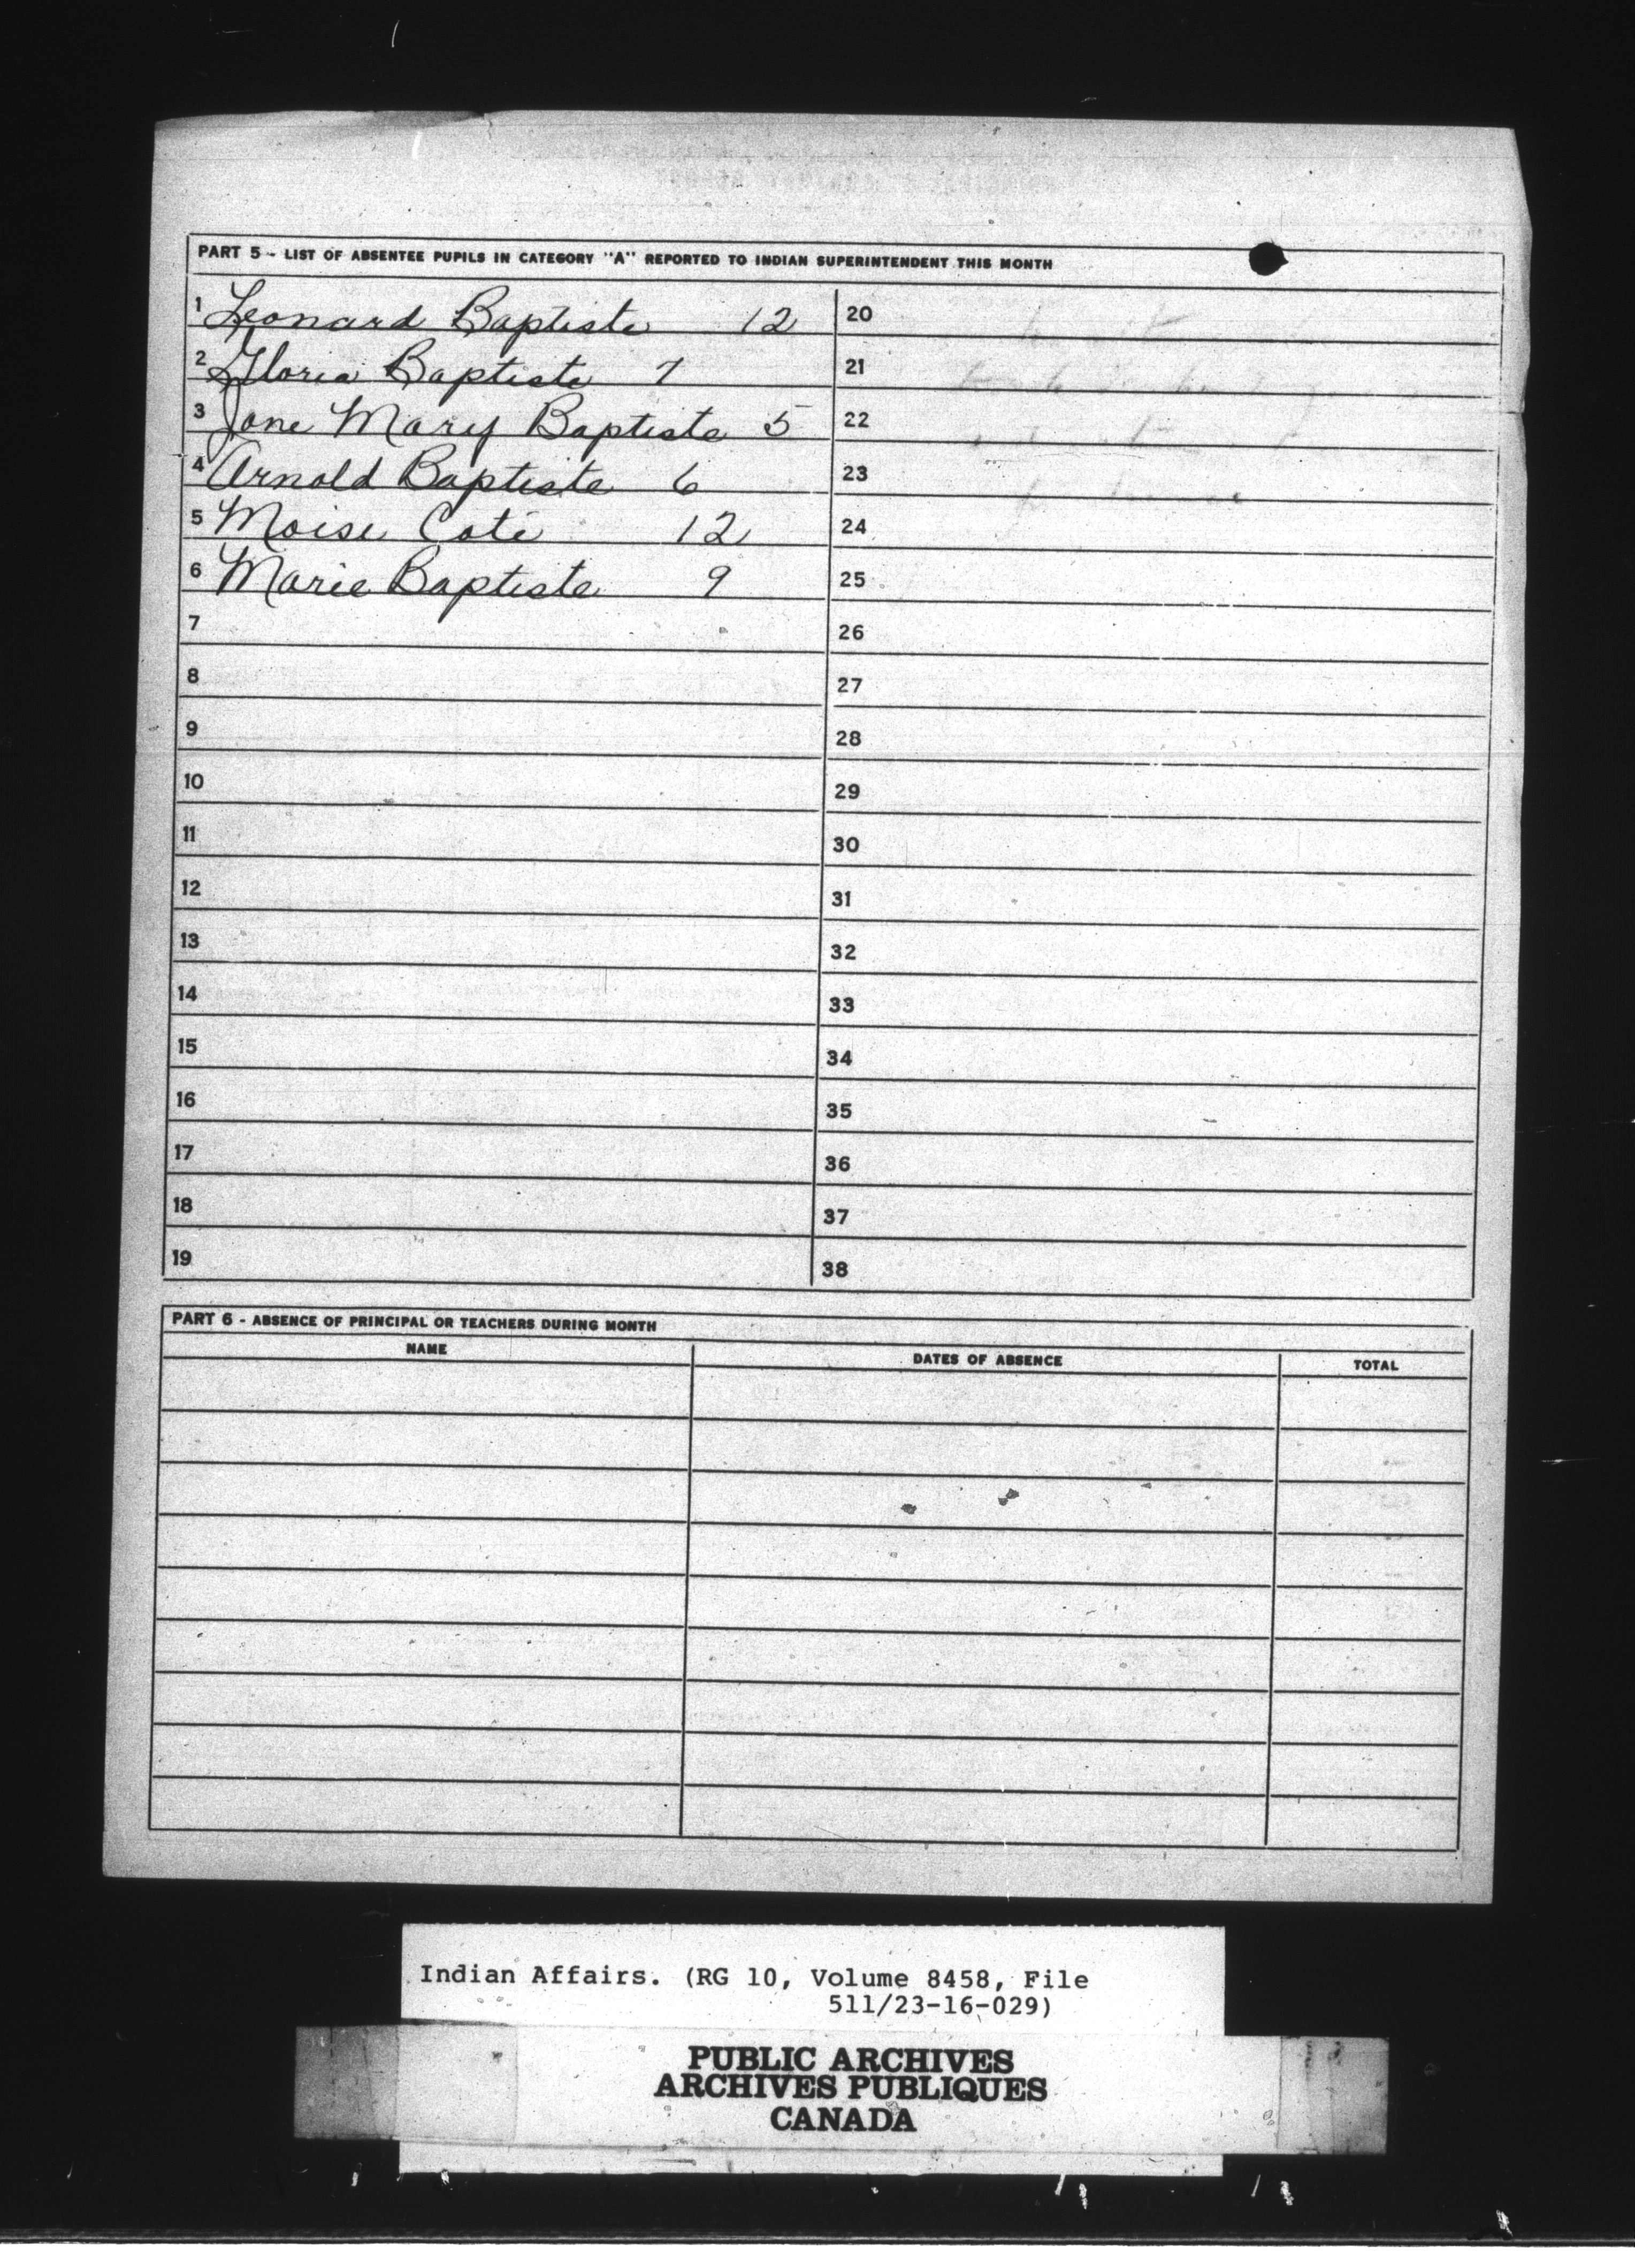 PART 5 - LIST OF ABSENTEE PUPILS IN CATEGORY "A" REPORTED TO INDIAN SUPERINTENDENT THIS MONTH
1 Leonard Baptiste 12
2 Gloria Baptiste 7
3 Jane Mary Baptiste 5
4 Arnold Baptiste 6
5 Moise Coté 12
6 Marie Baptiste 9
7
8
9
10
11
12
13
14
15
16
17
18
19
20
21
22
23
24
25
26
27
28
29
30
31
32
33
34
35
36
37
38
PART 6 - ABSENCE OF PRINCIPAL OR TEACHERS DURING MONTH
NAME DATES OF ABSENCE TOTAL
Indian Affairs. (RG 10, Volume 8458, File
511/23-16-029)
PUBLIC ARCHIVES
ARCHIVES PUBLIQUES
CANADA